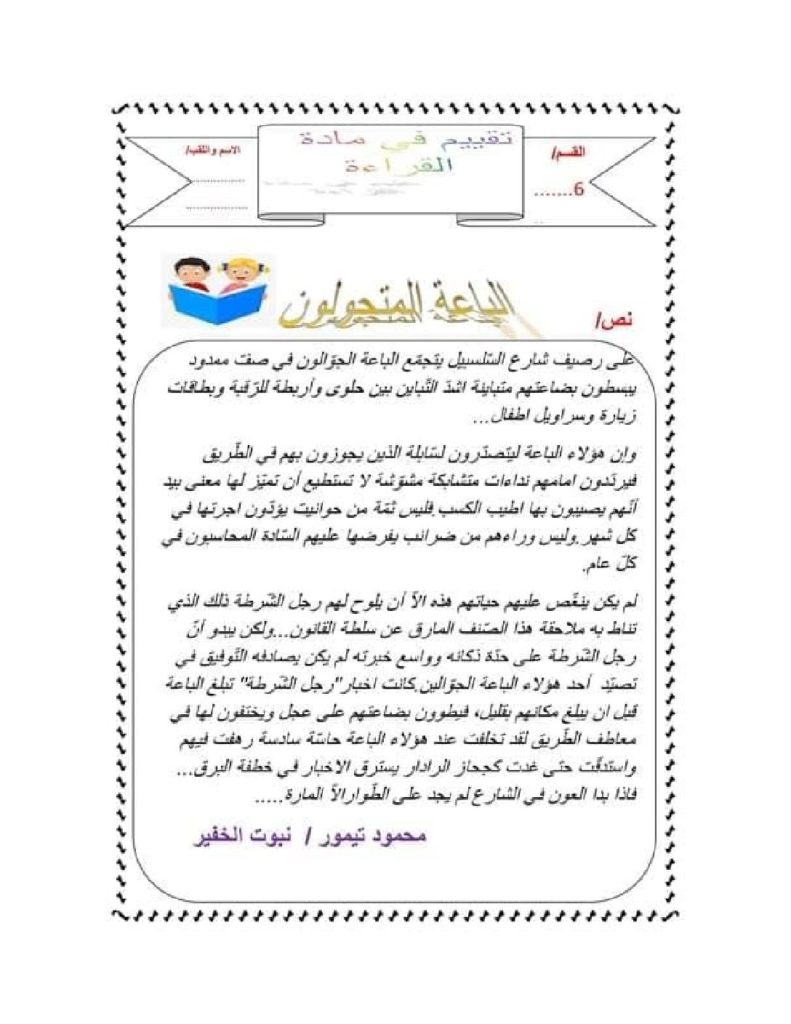 القسم/
6.......
تقييم في مادة
القراءة
الاسم واللقب/
..................
..................
نص/ الباعة المتجولون
على رصيف شارع السّلسبيل يتجمّع الباعة الجوّالون في صفّ ممدود
يبسطون بضاعتهم متباينة اشدّ التّباين بين حلوى وأربطة للرّقبة وبطاقات
زيارة وسراويل اطفال...
وان هؤلاء الباعة ليتصدّرون لسّابلة الذين يجوزون بهم في الطّريق
فيردّدون امامهم نداءات متشابكة مشوّشة لا تستطيع أن تميّز لها معنى بيد
أنّهم يصيبون بها اطيب الكسب.فليس ثمّة من حوانيت يؤدّون اجرتها في
كل شهر.وليس وراءهم من ضرائب يفرضها عليهم السّادة المحاسبون في
كلّ عام.
لم يكن ينغّص عليهم حياتهم هذه الاّ أن يلوح لهم رجل الشّرطة ذلك الذي
تناط به ملاحقة هذا الصّنف المارق عن سلطة القانون...ولكن يبدو أنّ
رجل الشّرطة على حدّة ذكائه وواسع خبرته لم يكن يصادفه التّوفيق في
تصيّد أحد هؤلاء الباعة الجوّالين.كانت اخبار"رجل الشّرطة" تبلغ الباعة
قبل ان يبلغ مكانهم بقليل، فيطوون بضاعتهم على عجل ويختفون لها في
معاطف الطّريق لقد تخلقت عند هؤلاء الباعة حاسّة سادسة رهفت فيهم
واستدقّت حتى غدت كجحاز الرادار يسترق الاخبار في خطفة البرق...
فاذا بدا العون في الشارع لم يجد على الطّوارالاّ المارة.....
محمود تيمور / نبوت الخفير